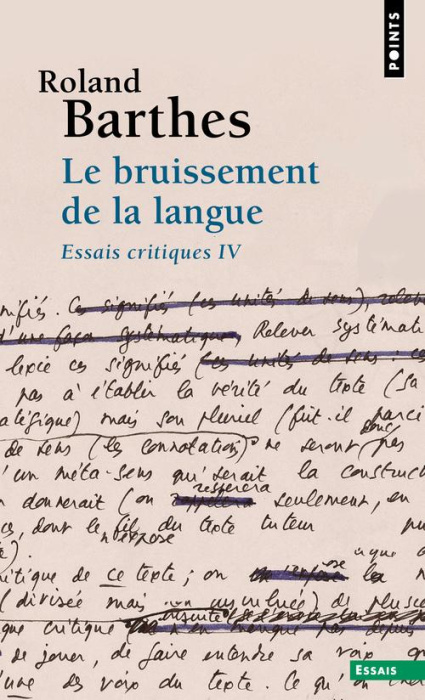 POINTS
Roland
Barthes
Le bruissement
de la langue
Essais critiques IV
nifiés. Ces signifiés (ces unités de sens), relever
d'une façon systématique, Relever systémati
lexie ces signifiés (ces unités de sens : ces
pas à établir la vérité du texte (sa
atégique) mais son pluriel (fût-il parci
de sens (les connotations) ne seront donc pas
d'un méta-sens qu'serait la construct
donnerait (on respectera seulement, en
dont le fil du texte tuteur
n'expose
que a
critique de ce texte ; on la
(divisée mais non
que critique
de jouer, de faire entendre sa voix
une des voix du texte. Ce qu'on
Essais